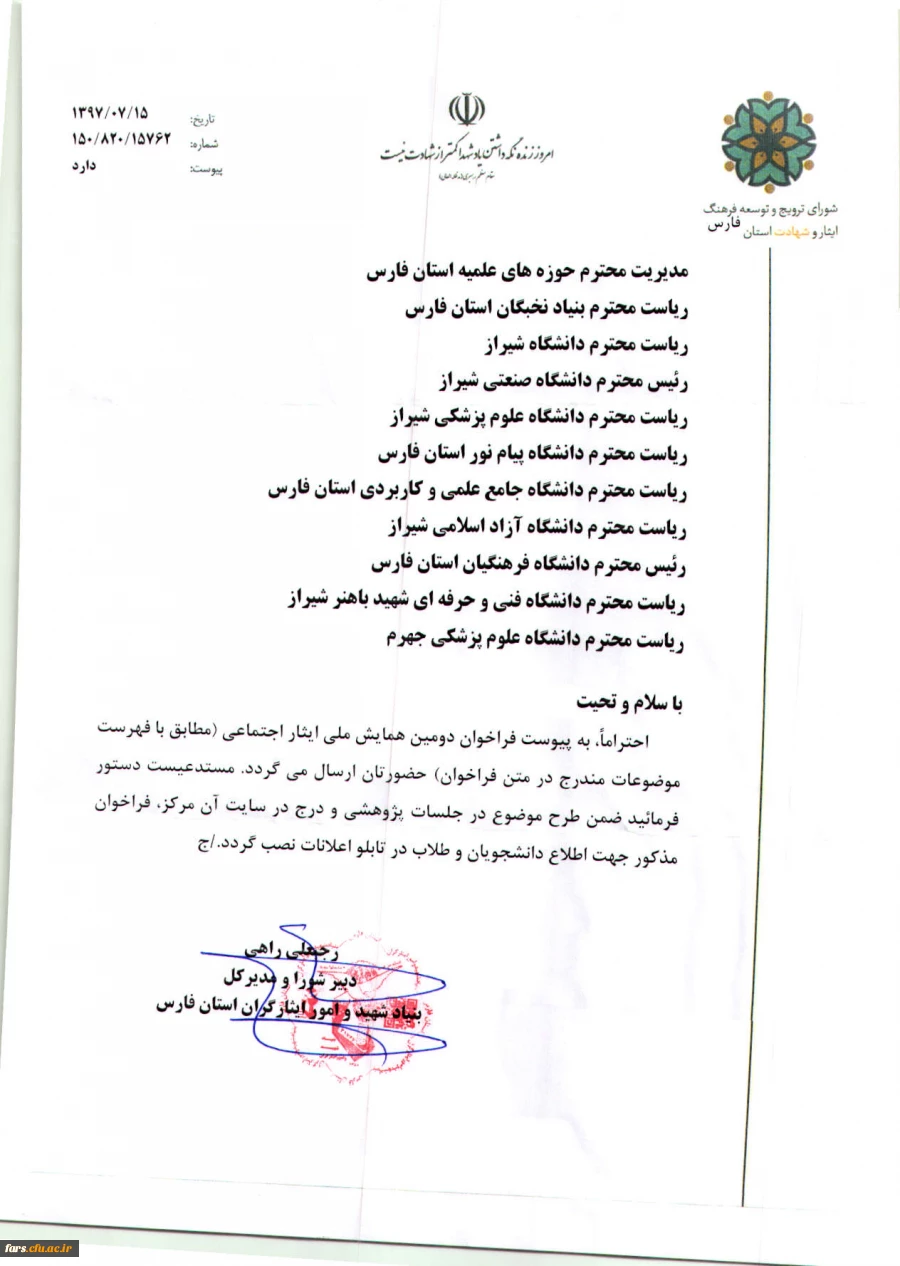 تاریخ: ۱۳۹۷/۰۷/۱۵
شماره: ۱۵۰/۸۲۰/۱۵۷۶۲
پیوست: دارد
امروز زنده نگه داشتن یاد شهدا کمتر از شهادت نیست
مقام معظم رهبری
شورای ترویج و توسعه فرهنگ
ایثار و شهادت استان فارس
مدیریت محترم حوزه های علمیه استان فارس
ریاست محترم بنیاد نخبگان استان فارس
ریاست محترم دانشگاه شیراز
رئیس محترم دانشگاه صنعتی شیراز
ریاست محترم دانشگاه علوم پزشکی شیراز
ریاست محترم دانشگاه پیام نور استان فارس
ریاست محترم دانشگاه جامع علمی و کاربردی استان فارس
ریاست محترم دانشگاه آزاد اسلامی شیراز
رئیس محترم دانشگاه فرهنگیان استان فارس
ریاست محترم دانشگاه فنی و حرفه ای شهید باهنر شیراز
ریاست محترم دانشگاه علوم پزشکی جهرم
با سلام و تحیت
احتراماً، به پیوست فراخوان دومین همایش ملی ایثار اجتماعی (مطابق با فهرست
موضوعات مندرج در متن فراخوان) حضورتان ارسال می گردد. مستدعیست دستور
فرمائید ضمن طرح موضوع در جلسات پژوهشی و درج در سایت آن مرکز، فراخوان
مذکور جهت اطلاع دانشجویان و طلاب در تابلو اعلانات نصب گردد./ج
رجبعلی راهی
دبیر شورا و مدیرکل
بنیاد شهید و امور ایثارگران استان فارس
fars.cfu.ac.ir